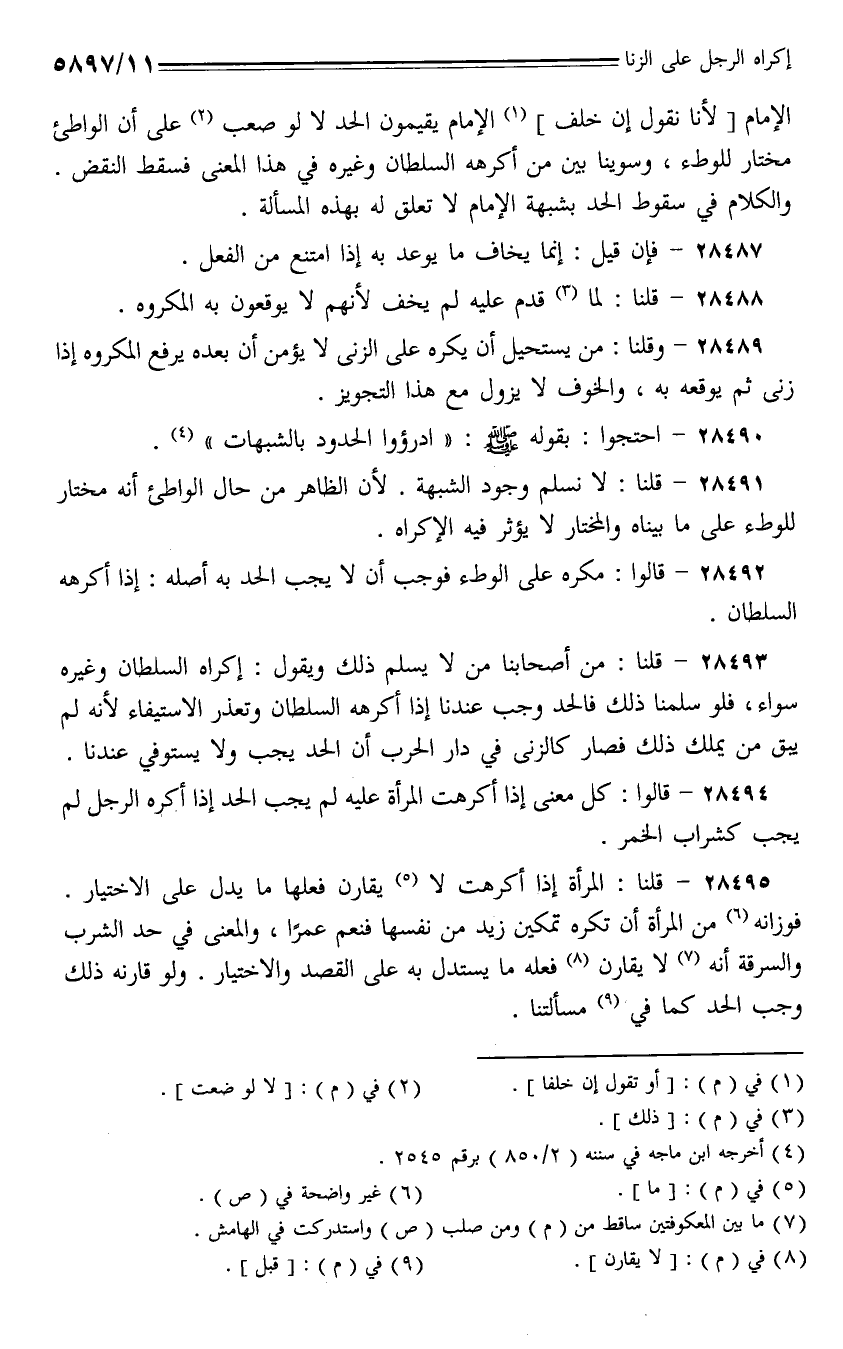 إكراه الرجل على الزنا ٥٨٩٧/١١
الإمام [ لأنا نقول إن خلف ] (١) الإمام يقيمون الحد لا لو صعب (٢) على أن الواطئ
مختار للوطء ، وسوينا بين من أكرهه السلطان وغيره في هذا المعنى فسقط النقض .
والكلام في سقوط الحد بشبهة الإمام لا تعلق له بهذه المسألة .
٢٨٤٨٧ – فإن قيل : إنما يخاف ما يوعد به إذا امتنع من الفعل .
٢٨٤٨٨ – قلنا : لما (٣) قدم عليه لم يخف لأنهم لا يوقعون به المكروه .
٢٨٤٨٩ – وقلنا : من يستحيل أن يكره على الزنى لا يؤمن أن بعده يرفع المكروه إذا
زنى ثم يوقعه به ، والخوف لا يزول مع هذا التجويز .
٢٨٤٩٠ – احتجوا : بقوله ﷺ : « ادرؤوا الحدود بالشبهات » (٤) .
٢٨٤٩١ – قلنا : لا نسلم وجود الشبهة . لأن الظاهر من حال الواطئ أنه مختار
للوطء على ما بيناه والمختار لا يؤثر فيه الإكراه .
٢٨٤٩٢ – قالوا : مكره على الوطء فوجب أن لا يجب الحد به أصله : إذا أكرهه
السلطان .
٢٨٤٩٣ – قلنا : من أصحابنا من لا يسلم ذلك ويقول : إكراه السلطان وغيره
سواء، فلو سلمنا ذلك فالحد وجب عندنا إذا أكرهه السلطان وتعذر الاستيفاء لأنه لم
يبق من يملك ذلك فصار كالزنى في دار الحرب أن الحد يجب ولا يستوفي عندنا .
٢٨٤٩٤ – قالوا : كل معنى إذا أكرهت المرأة عليه لم يجب الحد إذا أكره الرجل لم
يجب كشراب الخمر .
٢٨٤٩٥ – قلنا : المرأة إذا أكرهت لا (٥) يقارن فعلها ما يدل على الاختيار .
فوزانه (٦) من المرأة أن تكره تمكين زيد من نفسها فنعم عمرًا ، والمعنى في حد الشرب
والسرقة أنه (٧) لا يقارن (٨) فعله ما يستدل به على القصد والاختيار . ولو قارنه ذلك
وجب الحد كما في (٩) مسألتنا .
(١) في ( م ) : [ أو تقول إن خلفا ] . (٢) في ( م ) : [ لا لو ضعت ] .
(٣) في ( م ) : [ ذلك ] .
(٤) أخرجه ابن ماجه في سننه ( ٨٥٠/٢ ) برقم ٢٥٤٥ .
(٥) في ( م ) : [ ما ] . (٦) غير واضحة في ( ص ) .
(٧) ما بين المعكوفتين ساقط من ( م ) ومن صلب ( ص ) واستدركت في الهامش .
(٨) في ( م ) : [ لا يقارن ] . (٩) في ( م ) : [ قبل ] .